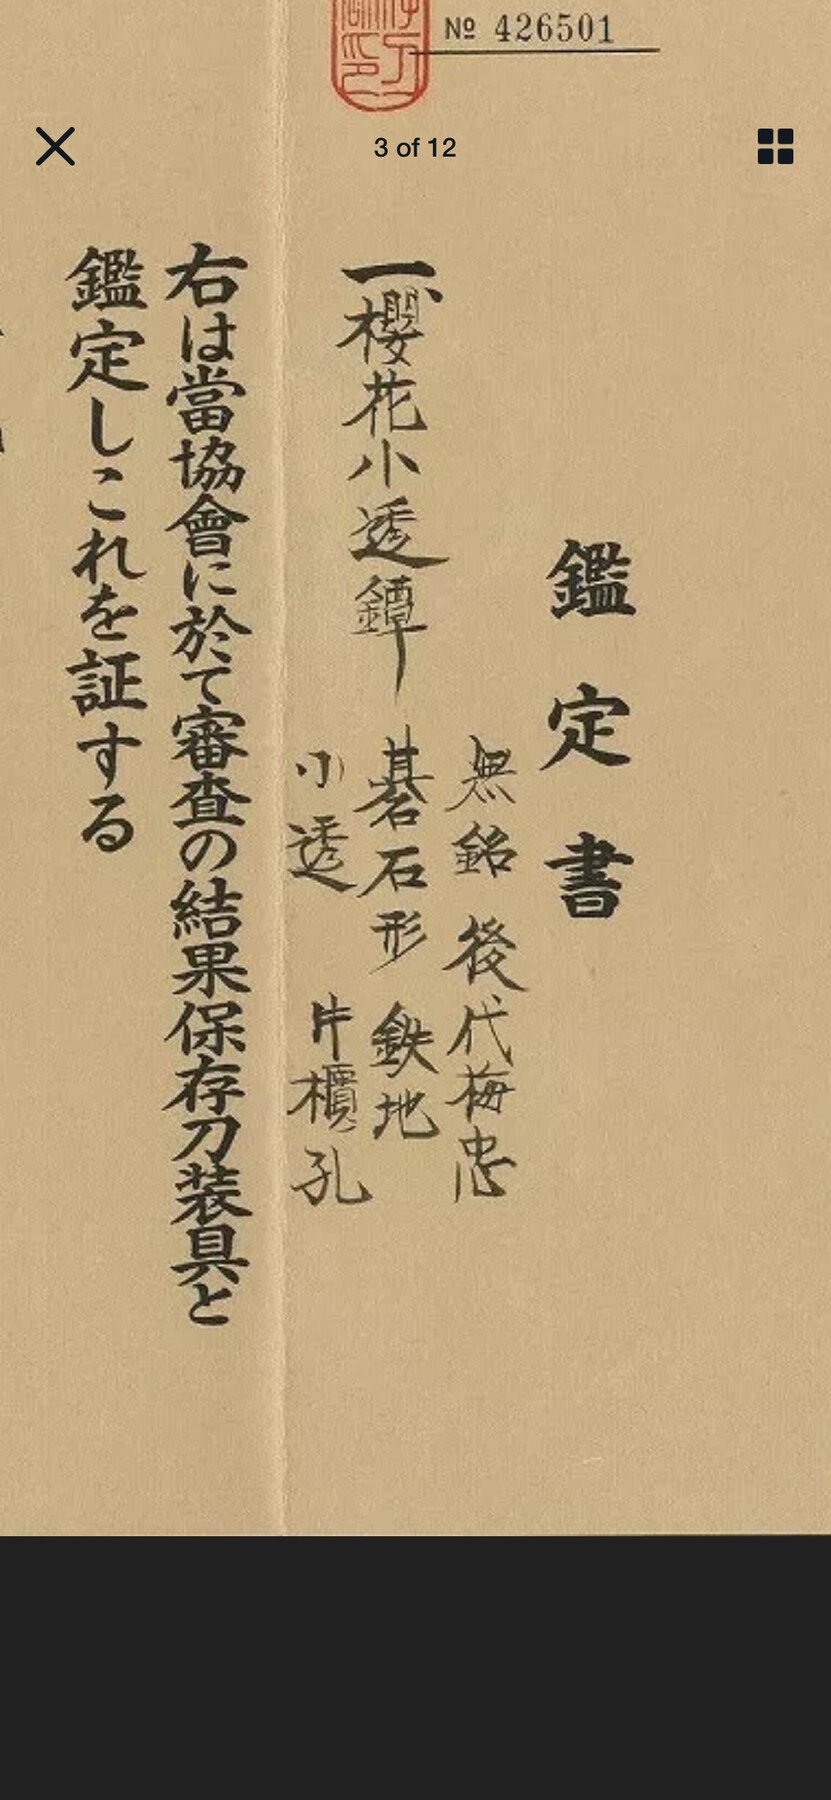 № 426501
3 of 12
鑑定書
一、櫻花小透鐔
無銘 後代梅忠
碁石形 鉄地
小透 片櫃孔
右は當協會に於て審査の結果保存刀装具と
鑑定しこれを証する